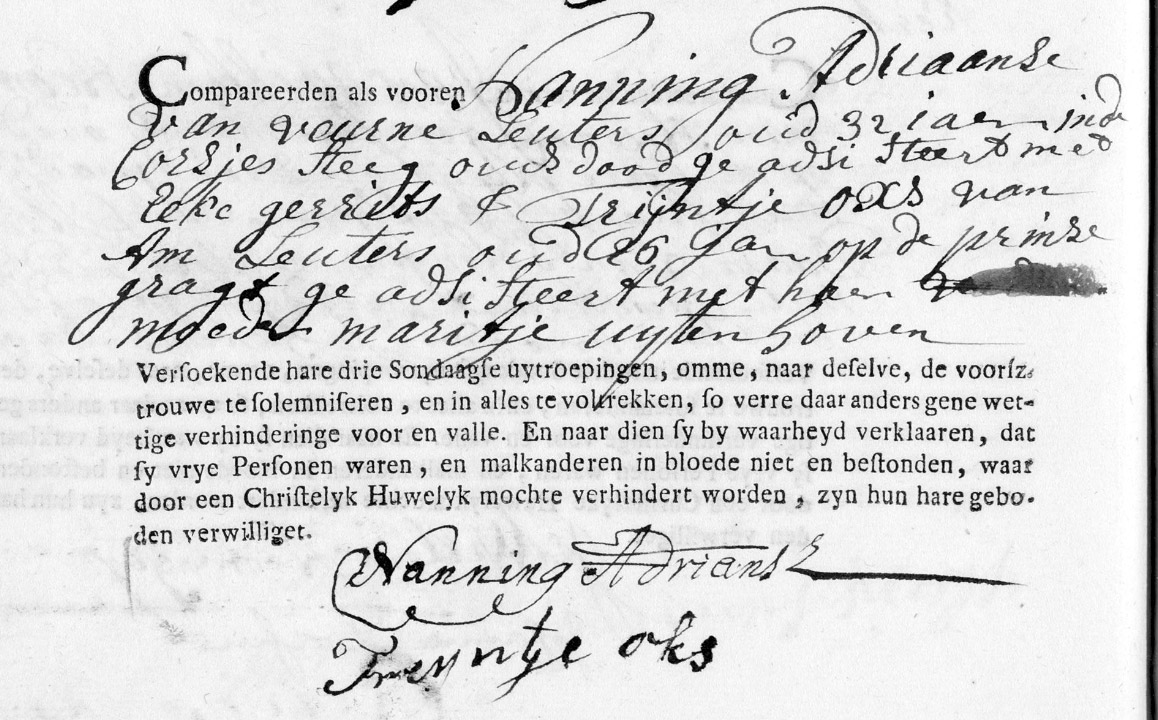 Compareerden als vooren Nanning Adriaanse
van veurne Leuters oud 32 iaer inde
Corsjes steeg ouds dood ge adsi steert met
Eeke gerrits & Trijntje oxs van
Am Leuters oud 26 Jaer op de prinse
gragt ge adsi steert met haer
moeder maritje uytenhoven
Versoekende hare drie Sondaagse uytroepingen, omme, naar deselve, de voorsz.
trouwe te solemniseren, en in alles te voltrekken, so verre daar anders gene wet-
tige verhinderinge voor en valle. En naar dien sy by waarheyd verklaaren, dat
sy vrye Personen waren, en malkanderen in bloede niet en bestonden, waar
door een Christelyk Huwelyk mochte verhindert worden, zyn hun hare gebo-
den verwilliget.
Nanning Adrians
Treyntje oks